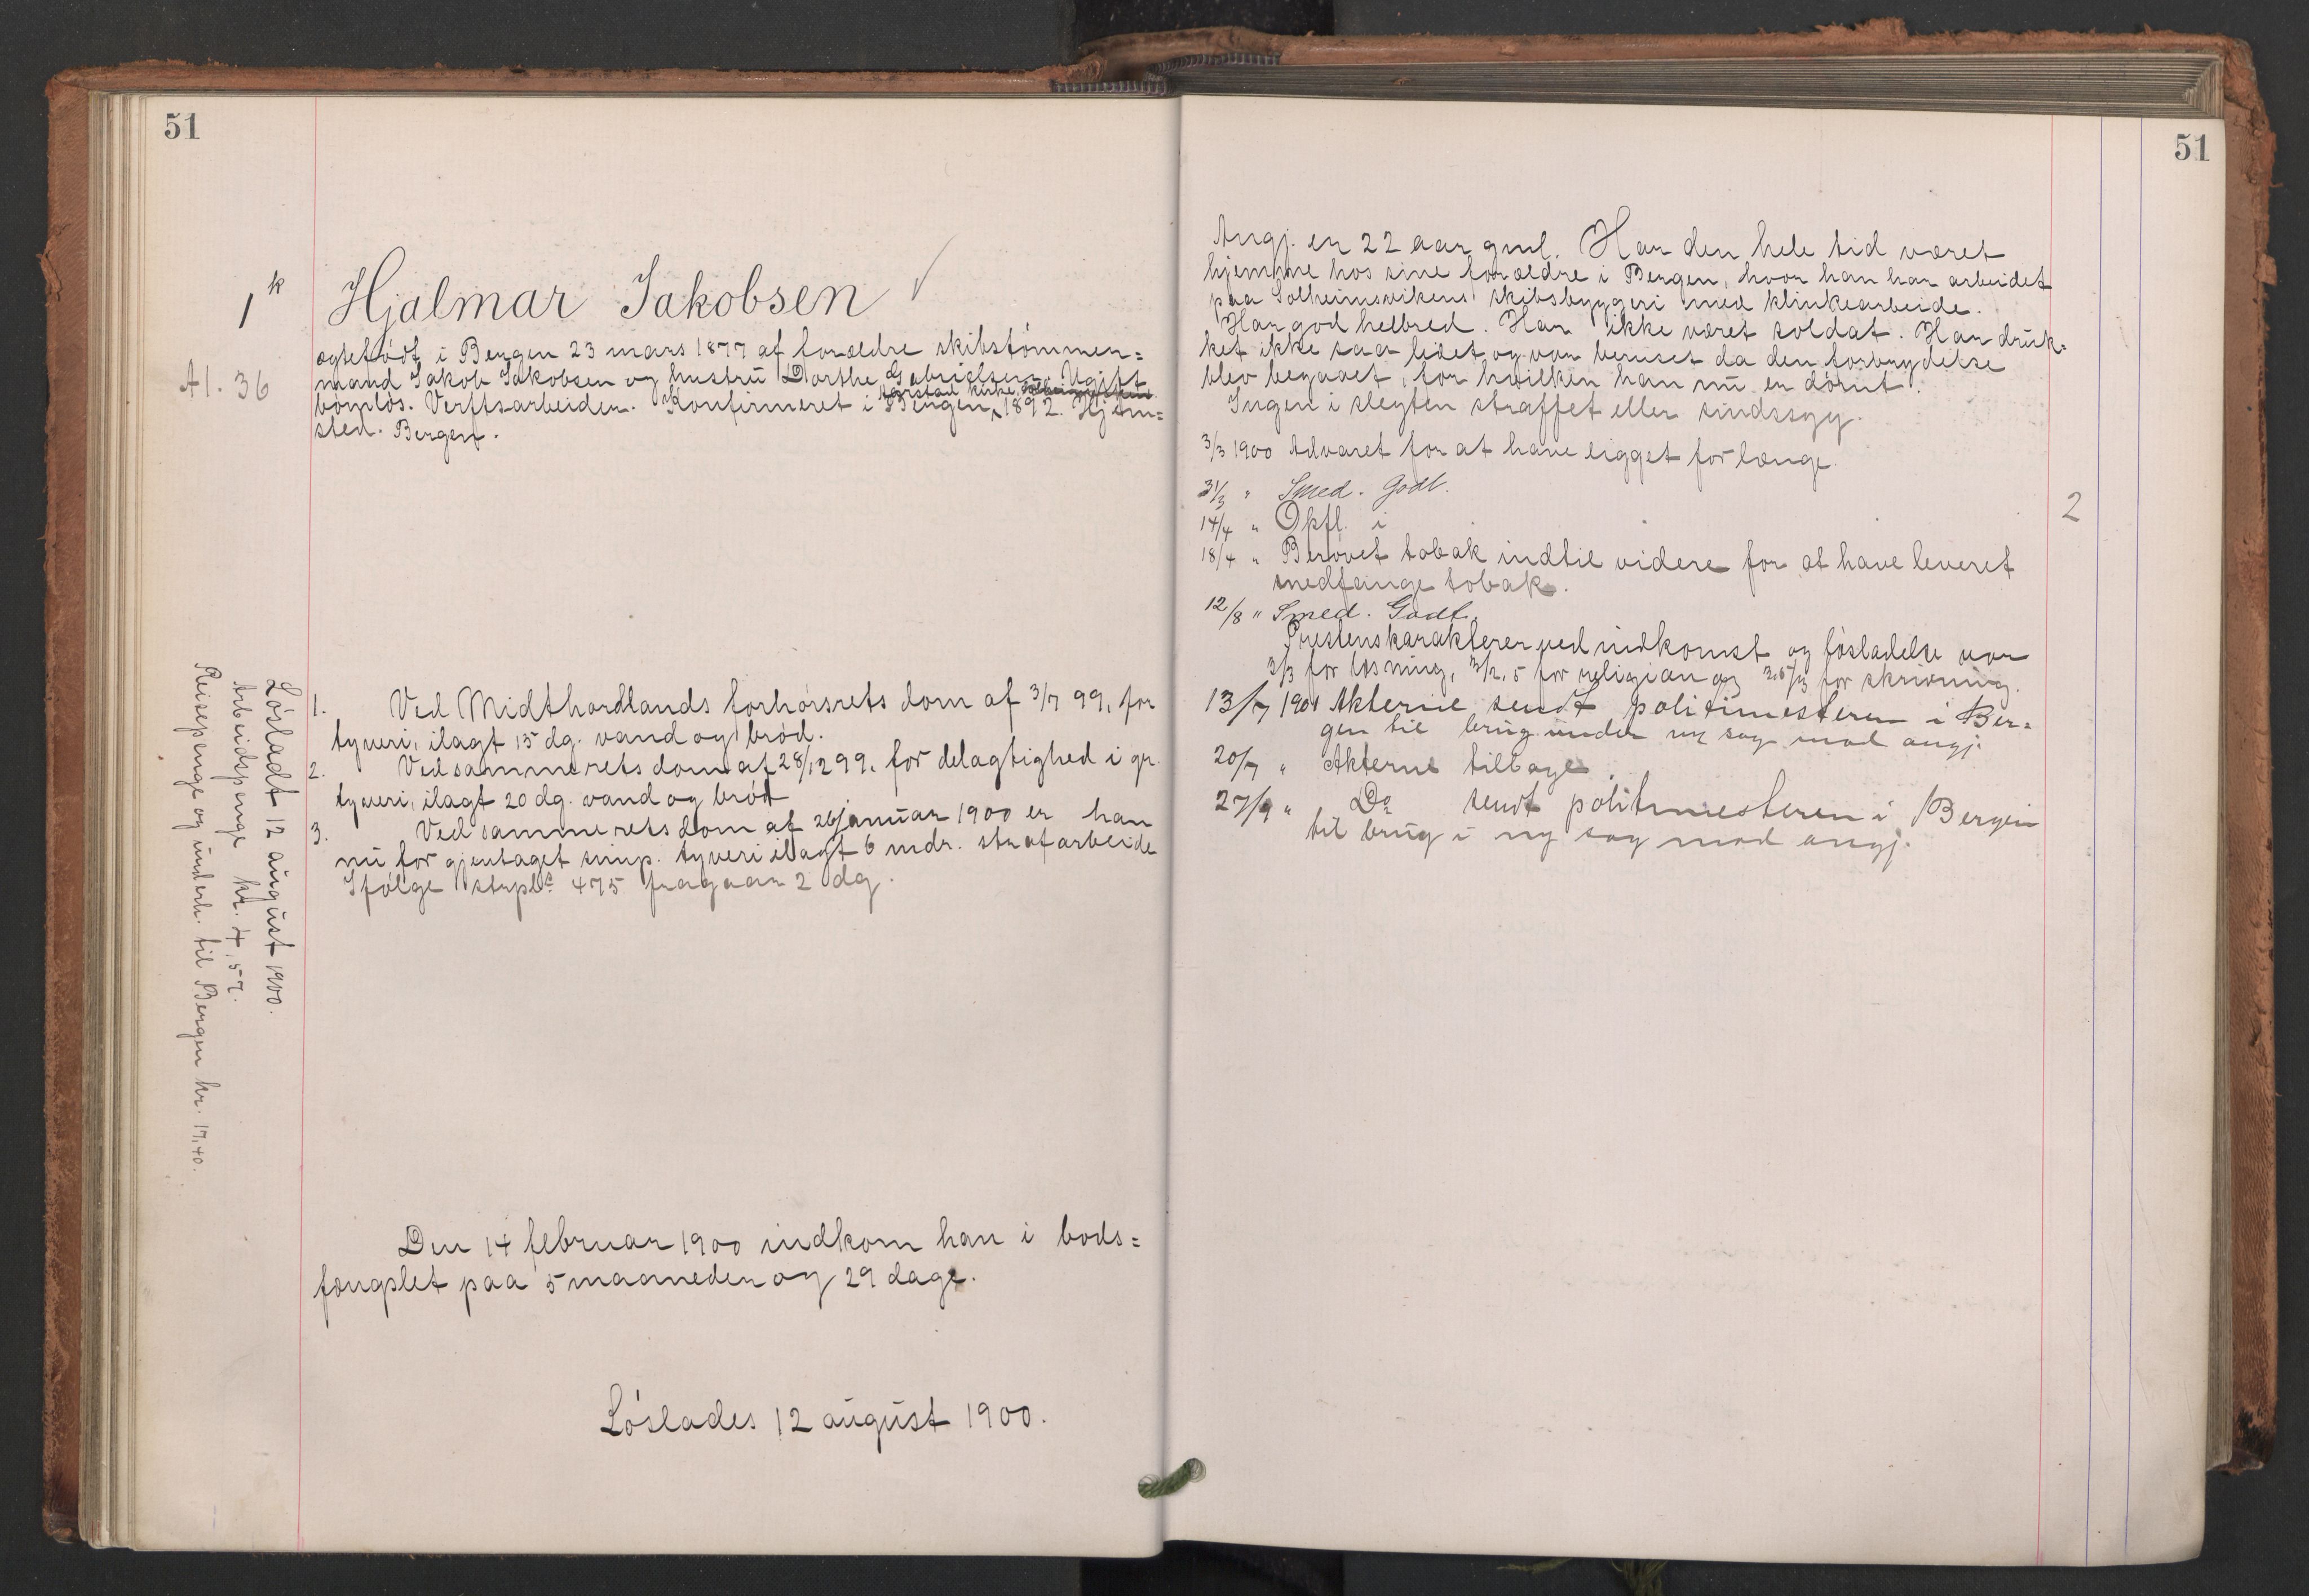 51
1 k
Hjalmar Jakobsen ✓
ægtefødt i Bergen 23 mars 1877 af forældre skibstømmer=
Al. 36
mand Jakob Jakobsen og hustru Dorthe Gabrielsen. Ugift,
Aarstad kirke,
barnløs. Verftsarbeider. Konfirmeret i Bergen, 1892. Hjem=
sted. Bergen.
1. Ved Midthordlands forhørsrets dom af 3/7 99, for
tyveri, ilagt 15 dg. vand og brød.
2. Ved samme rets dom af 28/12 99, for delagtighed i gr.
tyveri, ilagt 20 dg. vand og brød
3. Ved samme rets dom af 26 januar 1900 er han
nu for gjentaget simp. tyveri ilagt 6 mdr. strafarbeide
Ifølge strpl. § 475 fragaar 2 dg.
Løsladt 12 august 1900.
Arbeidspenge kr. 4,57.
Reisepenge og underh. til Bergen kr. 17,40.
Den 14 februar 1900 indkom han i bods=
fængslet paa 5 maaneder og 29 dage.
Løslades 12 august 1900.
51
Angj. er 22 aar gml. Har den hele tid været
hjemme hos sine forældre i Bergen, hvor han har arbeidet
paa Solheimsvikens skibsbyggeri med klinkearbeide.
Har god helbred. Har ikke været soldat. Har druk=
ket ikke saa lidet og var beruset da den forbrydelse
blev begaaet, for hvilken han nu er dømt.
Ingen i slegten straffet eller sindssyg.
3/3 1900 Advaret for at have ligget for længe.
31/3 " Smed. Godt.
14/4 " Opfl. i
2
18/4 " Berøvet tobak indtil videre for at have leveret
medfange tobak.
12/8 " Smed. Godt.
Prestens karakterer ved indkomst og løsladelse var
3/3 for læsning, 3/2,5 for religion og 2,5/3 for skrivning.
13/7 1901 Akterne sendt politimesteren i Ber=
gen til brug under ny sag mod angj.
20/7 " Akterne tilbage.
27/9 " Do sendt politimesteren i Bergen
til brug i ny sag mod angj.